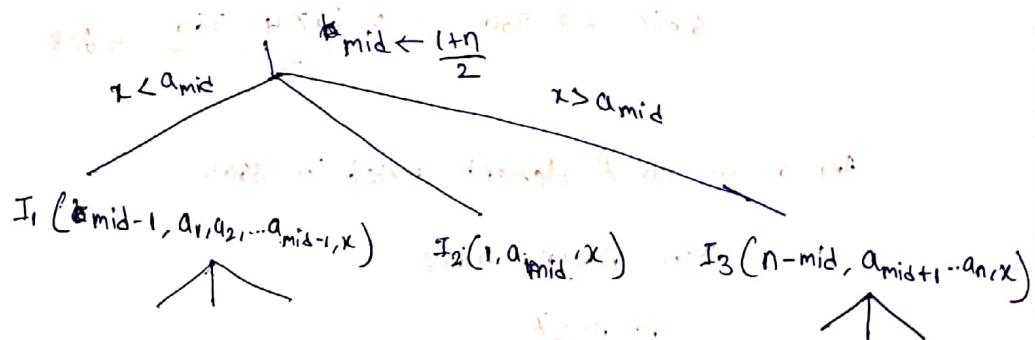 mid ← (1+n)/2
x < a_mid
x > a_mid
I₁ (mid-1, a₁, a₂, ... a_mid-1, x)
I₂ (1, a_mid, x)
I₃ (n-mid, a_mid+1 .. aₙ, x)